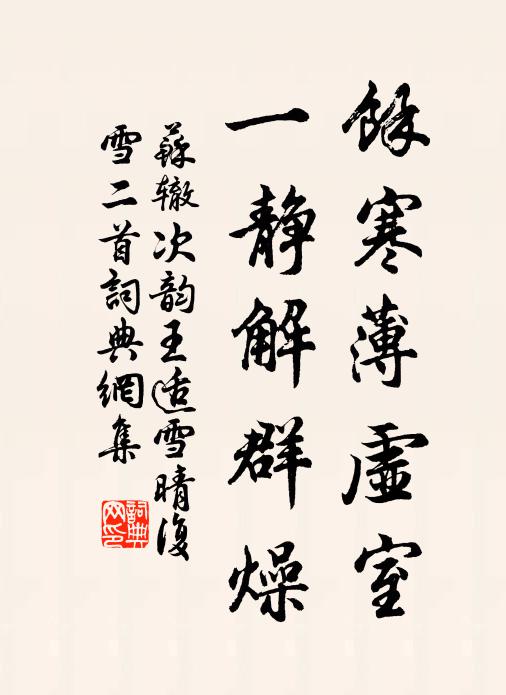 餘寒薄虛室
一静解群燥
蘇辙次韵王适雪晴復
雪二首詞典網集
詞典网印